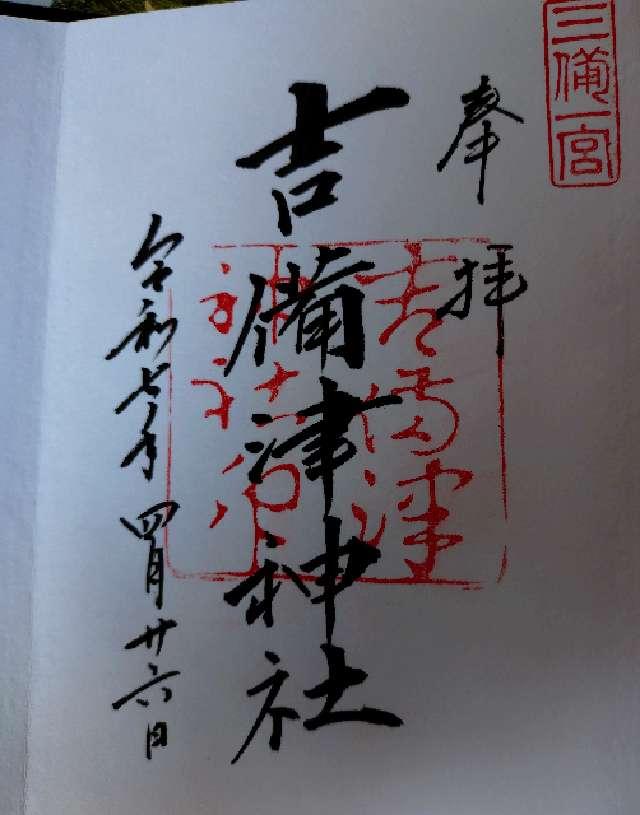 三備一宮
奉拝
吉備津神社
吉備津
神社
令和七年四月廿六日